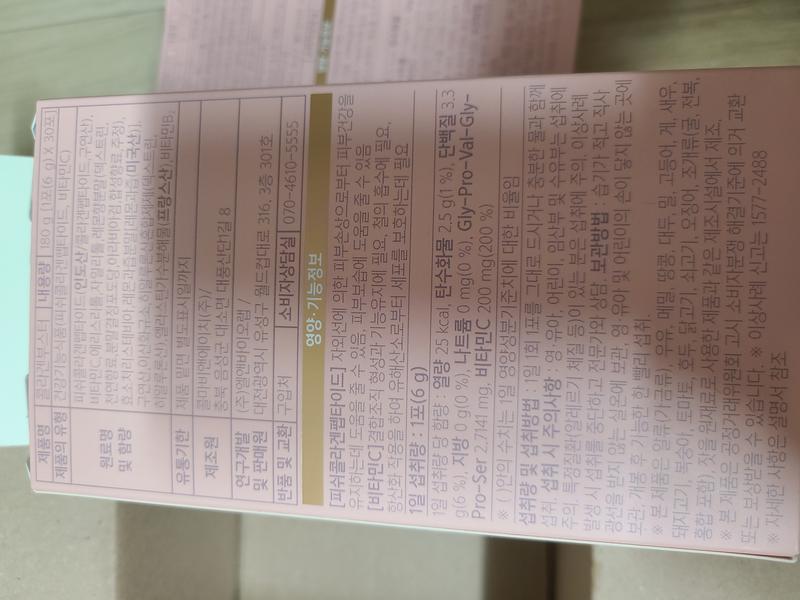 제품명 콜라겐부스터 내용량 180 g [1포(6 g) X 30포]
제품의 유형 건강기능식품(피쉬콜라겐펩타이드, 비타민C)
원료명 및 함량 피쉬콜라겐펩타이드,인도산(콜라겐펩타이드,구연산),
비타민C, 에리스리톨, 자일리톨, 레몬향분말(덱스트린,
천연향료,
효소처리스테비아,
구연산,
히알루론산,
프랑스산), 비타민B
유통기한 제품 밑면 별도표시일까지
제조원 콜마비앤에이치(주)/
충북 음성군 대소면 대풍산단1길 8
연구개발 및 판매원 (주)엘앤바이오랩 /
대전광역시 유성구 월드컵대로 316, 3층 301호
반품 및 교환 구입처 소비자상담실 070-4610-5555
영양·기능정보
[피쉬콜라겐펩타이드] 자외선에 의한 피부손상으로부터 피부건강을
유지하는데 도움을 줄 수 있음, 피부보습에 도움을 줄 수 있음
[비타민C] 결합조직 형성과 기능유지에 필요, 철의 흡수에 필요,
항산화 작용을 하여 유해산소로부터 세포를 보호하는데 필요
1일 섭취량 : 1포(6 g)
1일 섭취량 당 함량 : 열량 25 kcal, 탄수화물 2.5 g(1%), 단백질 3.3
g(6 %), 지방 0 g(0 %), 나트륨 0 mg(0 %), Gly-Pro-Val-Gly-
Pro-Ser 2.7141 mg, 비타민C 200 mg(200 %)
※ ( )안의 수치는 1일 영양성분기준치에 대한 비율임
섭취량 및 섭취방법 : 1일 1회 1포를 그대로 드시거나 충분한 물과 함께
섭취. 섭취 시 주의사항 : 영·유아, 어린이, 임산부 및 수유부는 섭취에
주의, 특정질환(알레르기 체질 등)이 있는 분은 섭취에 주의, 이상사례
발생 시 섭취를 중단하고 전문가와 상담. 보관방법 : 습기가 적고 직사
광선을 받지 않는 실온에 보관, 영·유아 및 어린이의 손이 닿지 않는 곳에
보관, 개봉 후 가능한 한 빨리 섭취.
※ 본 제품은 알류(가금류), 우유, 메밀, 땅콩, 대두, 밀, 고등어, 게, 새우,
돼지고기, 복숭아, 토마토, 호두, 닭고기, 쇠고기, 오징어, 조개류(굴, 전복,
홍합 포함), 잣을 원재료로 사용한 제품과 같은 제조시설에서 제조.
※ 본 제품은 공정거래위원회 고시 소비자분쟁 해결기준에 의거 교환
또는 보상받을 수 있습니다. ※ 이상사례 신고는 1577-2488
※ 자세한 사항은 설명서 참조